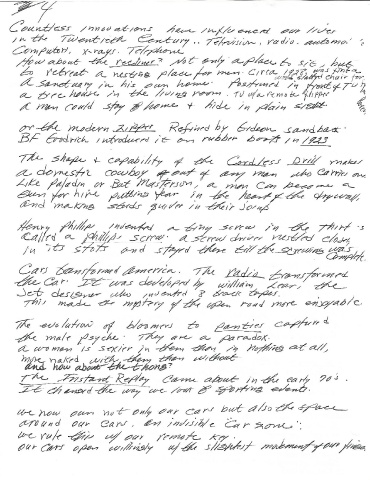 4
Countless innovations have influenced our lives
in the Twentieth Century.. Television. radio. automo
Computers. x-rays. Telephone
How about the recliner? Not only a place to sit, but
to retreat a nesting place for men. Circa 1928 was
a sanctuary in his own home. Positioned in front of TV in
a tire house in the living room. TV or a remote flipper
a man could stay @ home & hide in plain sight
or the modern zipper Refined by Gideon sandback
BF Goodrich introduced it on rubber boots in 1923
The shape & capability of the Cordless Drill makes
a domestic cowboy out of any man who carries one
Like Paladin or Bat Masterson, a man can become a
Gun for hire putting fear in the heart of the drywall,
and making studs quiver in their soup
Henry Phillip invented a tiny screw in the Thirt's
called a Phillip screw. a screw driver nestled close
in its slots and stayed there till the screwing was
Complete.
Cars transformed america. The radio transformed
the Car. It was developed by william Lear. the
Jet designer who invented 8 track tapes.
This made the mystery of the open road more enjoyable
The evolution of bloomers to panties captured
the male psyche. They are a paradox.
a woman is sexier in them than in nothing at all,
more naked with them than without
and how about the thong?
The Instant Replay came about in the early 70's.
It changed the way we look @ sporting events.
we now own not only our cars but also the space
around our cars. an indisible "Car zone";
we rule this w/ our remote key.
our cars open willingly w/ the slightest movement of our